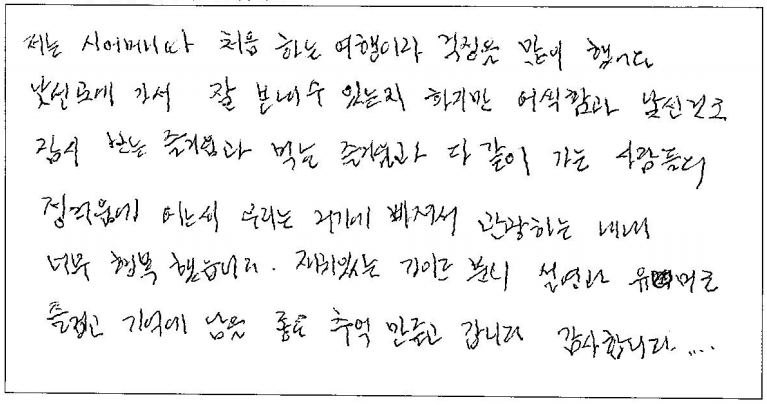 저는 시어머니와 처음 하는 여행이라 걱정을 많이 했습니다
낯선곳에 가서 잘 보낼수 있는지 하지만 어색함과 낯선것도
잠시 보는 즐거움과 먹는 즐거움과 다 같이 가는 사람들의
정겨움에 어느새 우리는 거기에 빠져서 관광하는 내내
너무 행복 했습니다. 재미있는 가이드 분의 설명과 유머로
즐겁고 기억에 남을 좋은 추억 만들고 갑니다 감사합니다....